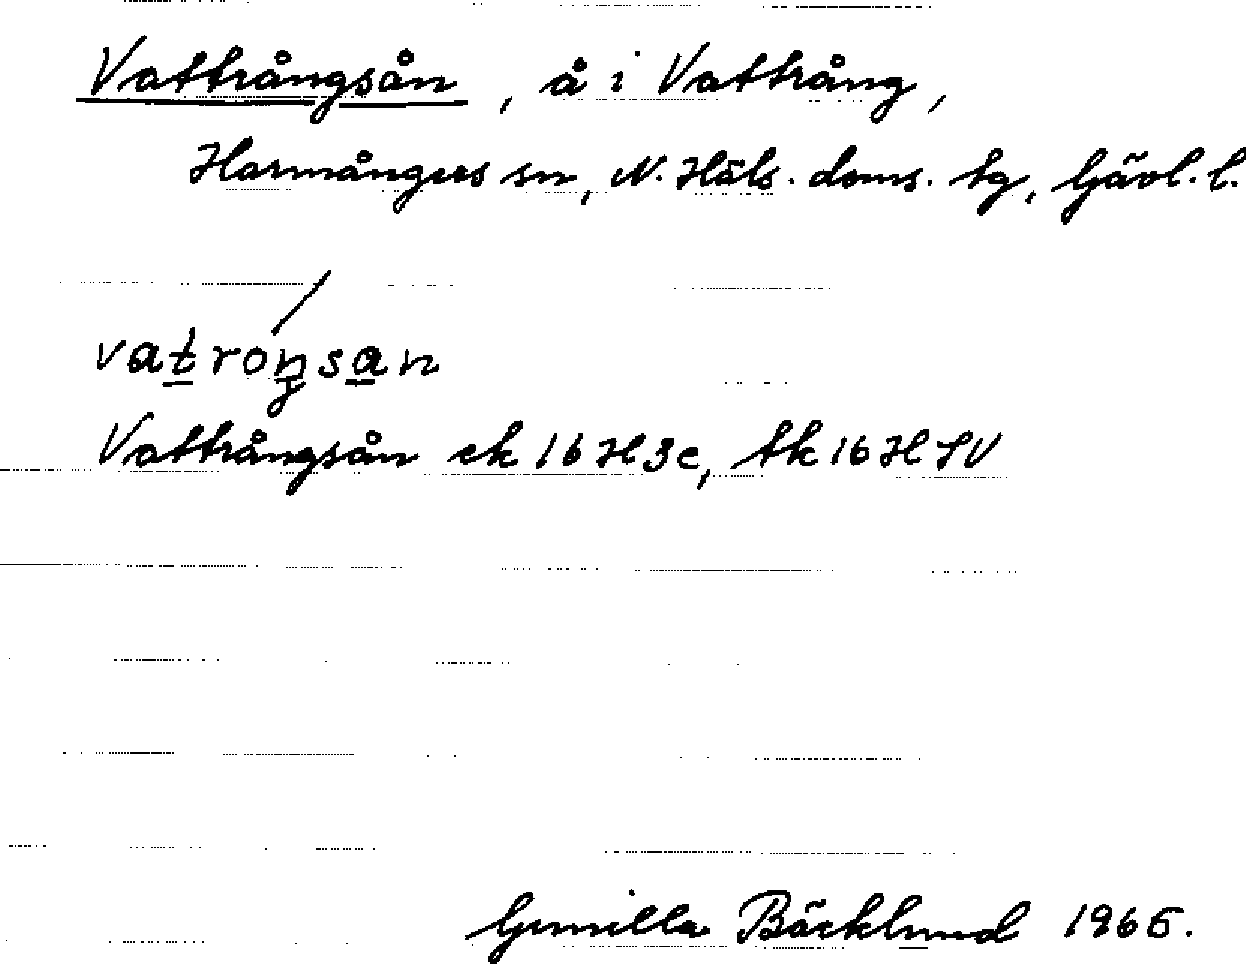 Vattrångsån, å i Vattrång,
Harmångers sn, N. Häls. doms. tg, Gävl. l.
vatroŋsan
Vattrångsån ek 16 H 3c, tk 16 H SV
Gunilla Bäcklund 1965.